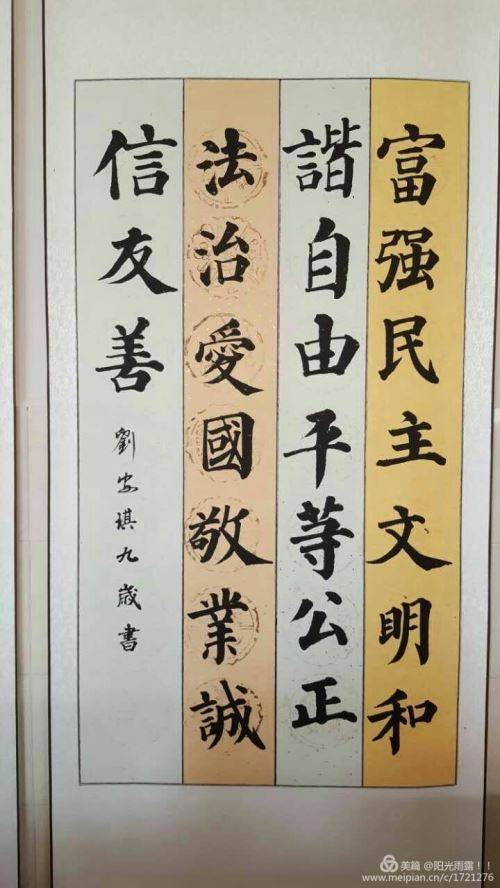 富强民主文明和
諧自由平等公正
法治愛國敬業誠
信友善
劉安琪九歲書
美篇 @阳光雨露！！
www.meipian.cn/c/1721276